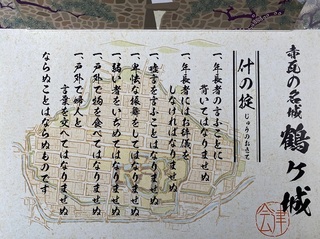 赤瓦の名城 鶴ヶ城
什の掟
じゅうのおきて
一、年長者の言ふことに
背いてはなりませぬ
一、年長者にはお辞儀を
しなければなりませぬ
一、虚言を言ふことはなりませぬ
一、卑怯な振舞をしてはなりませぬ
一、弱い者をいぢめてはなりませぬ
一、戸外で物を食べてはなりませぬ
一、戸外で婦人と
言葉を交へてはなりませぬ
ならぬことはならぬものです
会津